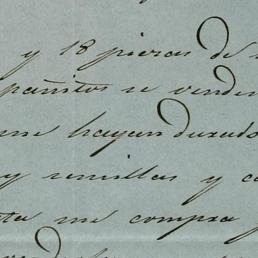 y 18 piezas de
pañitos se vende
me hayan durado
y semillas y ca
ta me compra